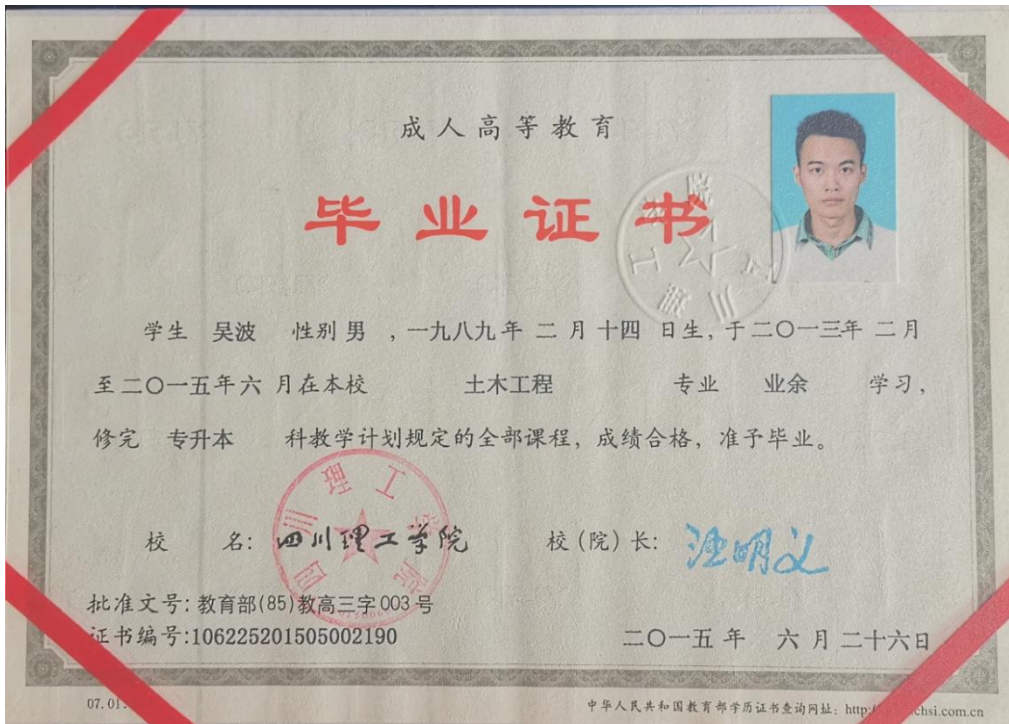 成人高等教育
毕业证书
学生 吴波 性别 男 ，一九八九年 二 月 十四 日生，于二〇一三年 二月
至二〇一五年六 月在本校 土木工程 专业 业余 学习，
修完 专升本 科教学计划规定的全部课程，成绩合格，准予毕业。
校 名：四川理工学院 校（院）长：
批准文号：教育部(85)教高三字003号
证书编号:106225201505002190
二〇一五 年 六 月 二十六日
四川理工学院
07.01.
中华人民共和国教育部学历证书查询网址：http://
chsi.com.cn